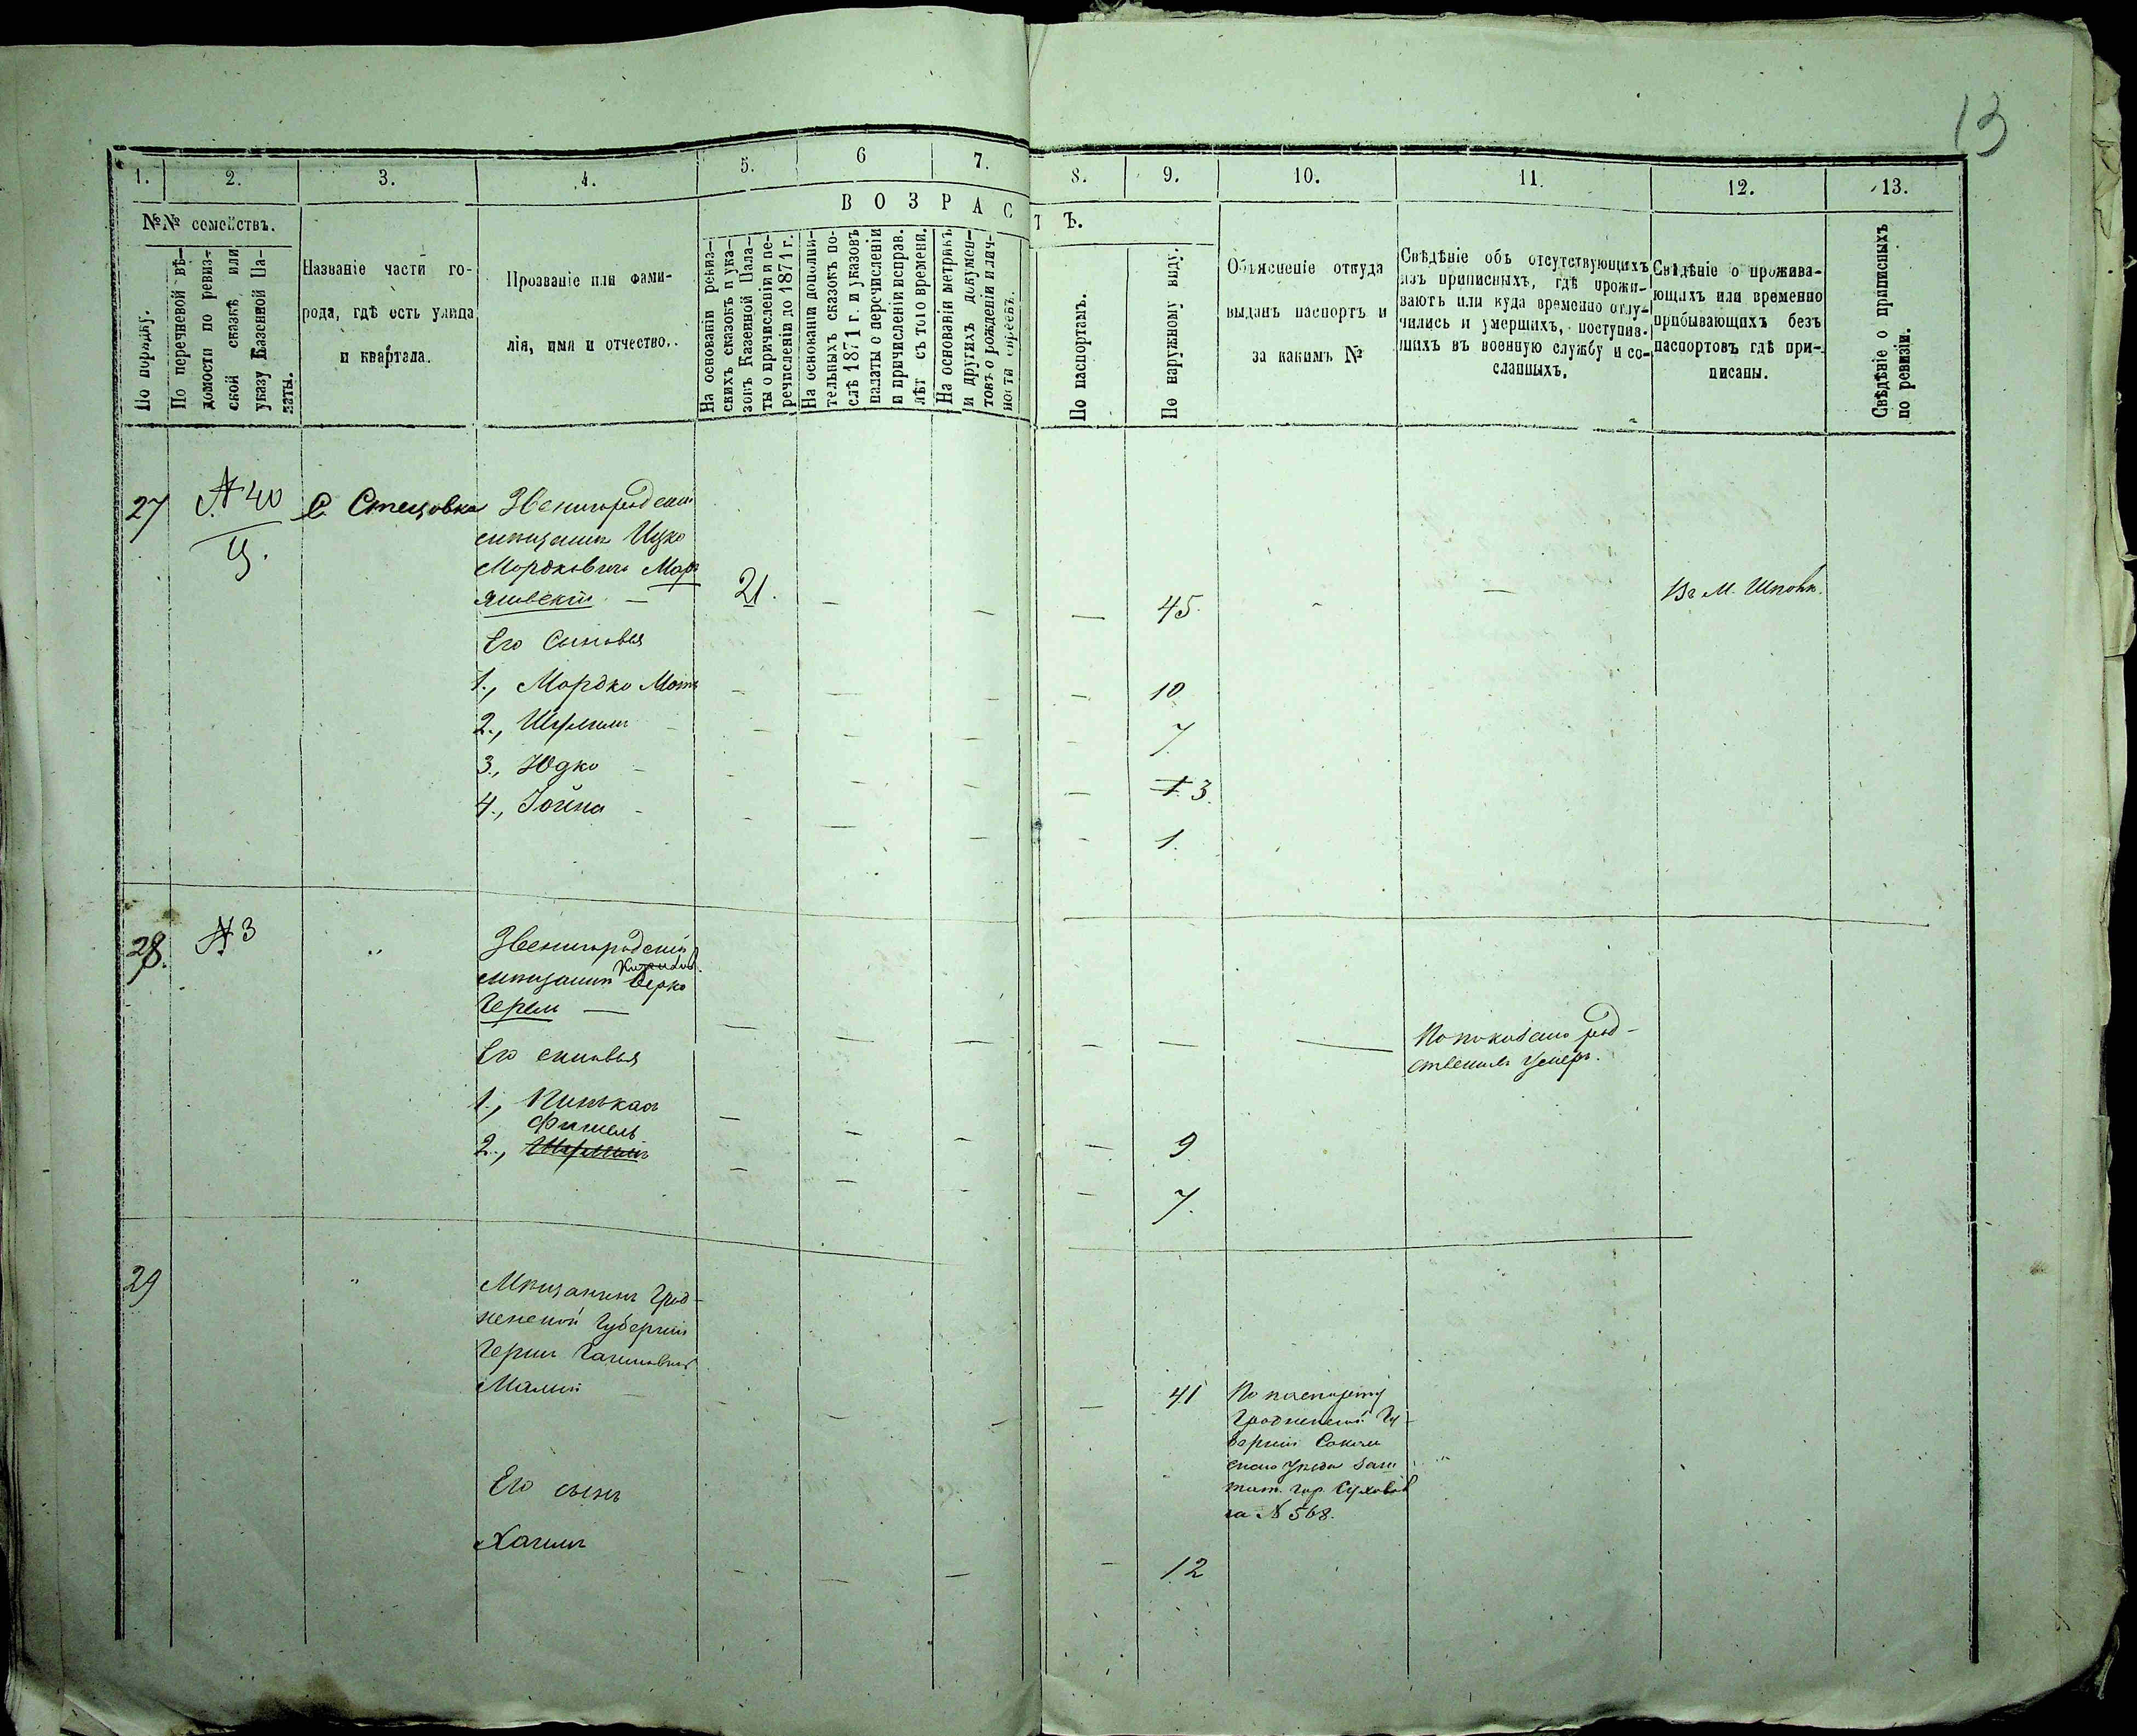 13
1. 2. 3. 4. 5. 6 7. 8. 9. 10. 11. 12. 13.
№№ семействъ.
В О З Р А С Т Ъ.
По порядку.
По перечневой вѣ-
домости по ревиз-
ской сказкѣ или
указу Казенной Па-
латы.
Названіе части го-
рода, гдѣ есть улица
и квартала.
Прозваніе или фами-
лія, имя и отчество.
На основаніи ревиз-
скихъ сказокъ и ука-
зовъ Казенной Пала-
ты о причисленіи и пе-
речисленіи до 1871 г.
На основаніи дополни-
тельныхъ сказокъ по-
слѣ 1871 г. и указовъ
палаты о перечисленіи
и причисленіи исправ.
лѣт съ того времени.
На основаніи метрикъ
и другихъ докумен-
товъ о рожденіи и лич-
ности
По паспортамъ.
По наружному виду.
Объясненіе откуда
выданъ паспортъ и
за какимъ №
Свѣдѣніе объ отсутствующихъ
изъ приписныхъ, гдѣ прожи-
ваютъ или куда временно отлу-
чились и умершихъ, поступив-
шихъ въ военную службу и со-
сланныхъ.
Свѣдѣніе о прожива-
ющихъ или временно
прибывающихъ безъ
паспортовъ гдѣ при-
писаны.
Свѣдѣніе о приписныхъ
по ревизіи.
27 № 40 С. Стецовка Звенигородскій
мѣщанинъ Ицко
Мордковичъ Мар
яновскій — 21. — — — 45. - — Въ М. Шполѣ.
Его сыновья
1., Мордко — — — — 10
2., Шулимъ — — — — 7.
3., Юдко — — — — 3.
4., Іойна — — — — 1.
28. № 3 " Звенигородскій
мѣщанинъ Берко
Герш — — — — — — — По показанію род-
ственниковъ умеръ.
Его сыновья
1., Пинькасъ — — — — 9
Фишель
2., Шулимъ — — — — 7.
29 " Мѣщанинъ Грод-
ненской губерніи
Герш
Малый — — — 41 По паспорту
Гродненской Гу-
берніи Соколь
скаго уѣзда Заш
тат. гор. Суховол
за № 568.
Его сынъ
Хаимъ — — — — 12